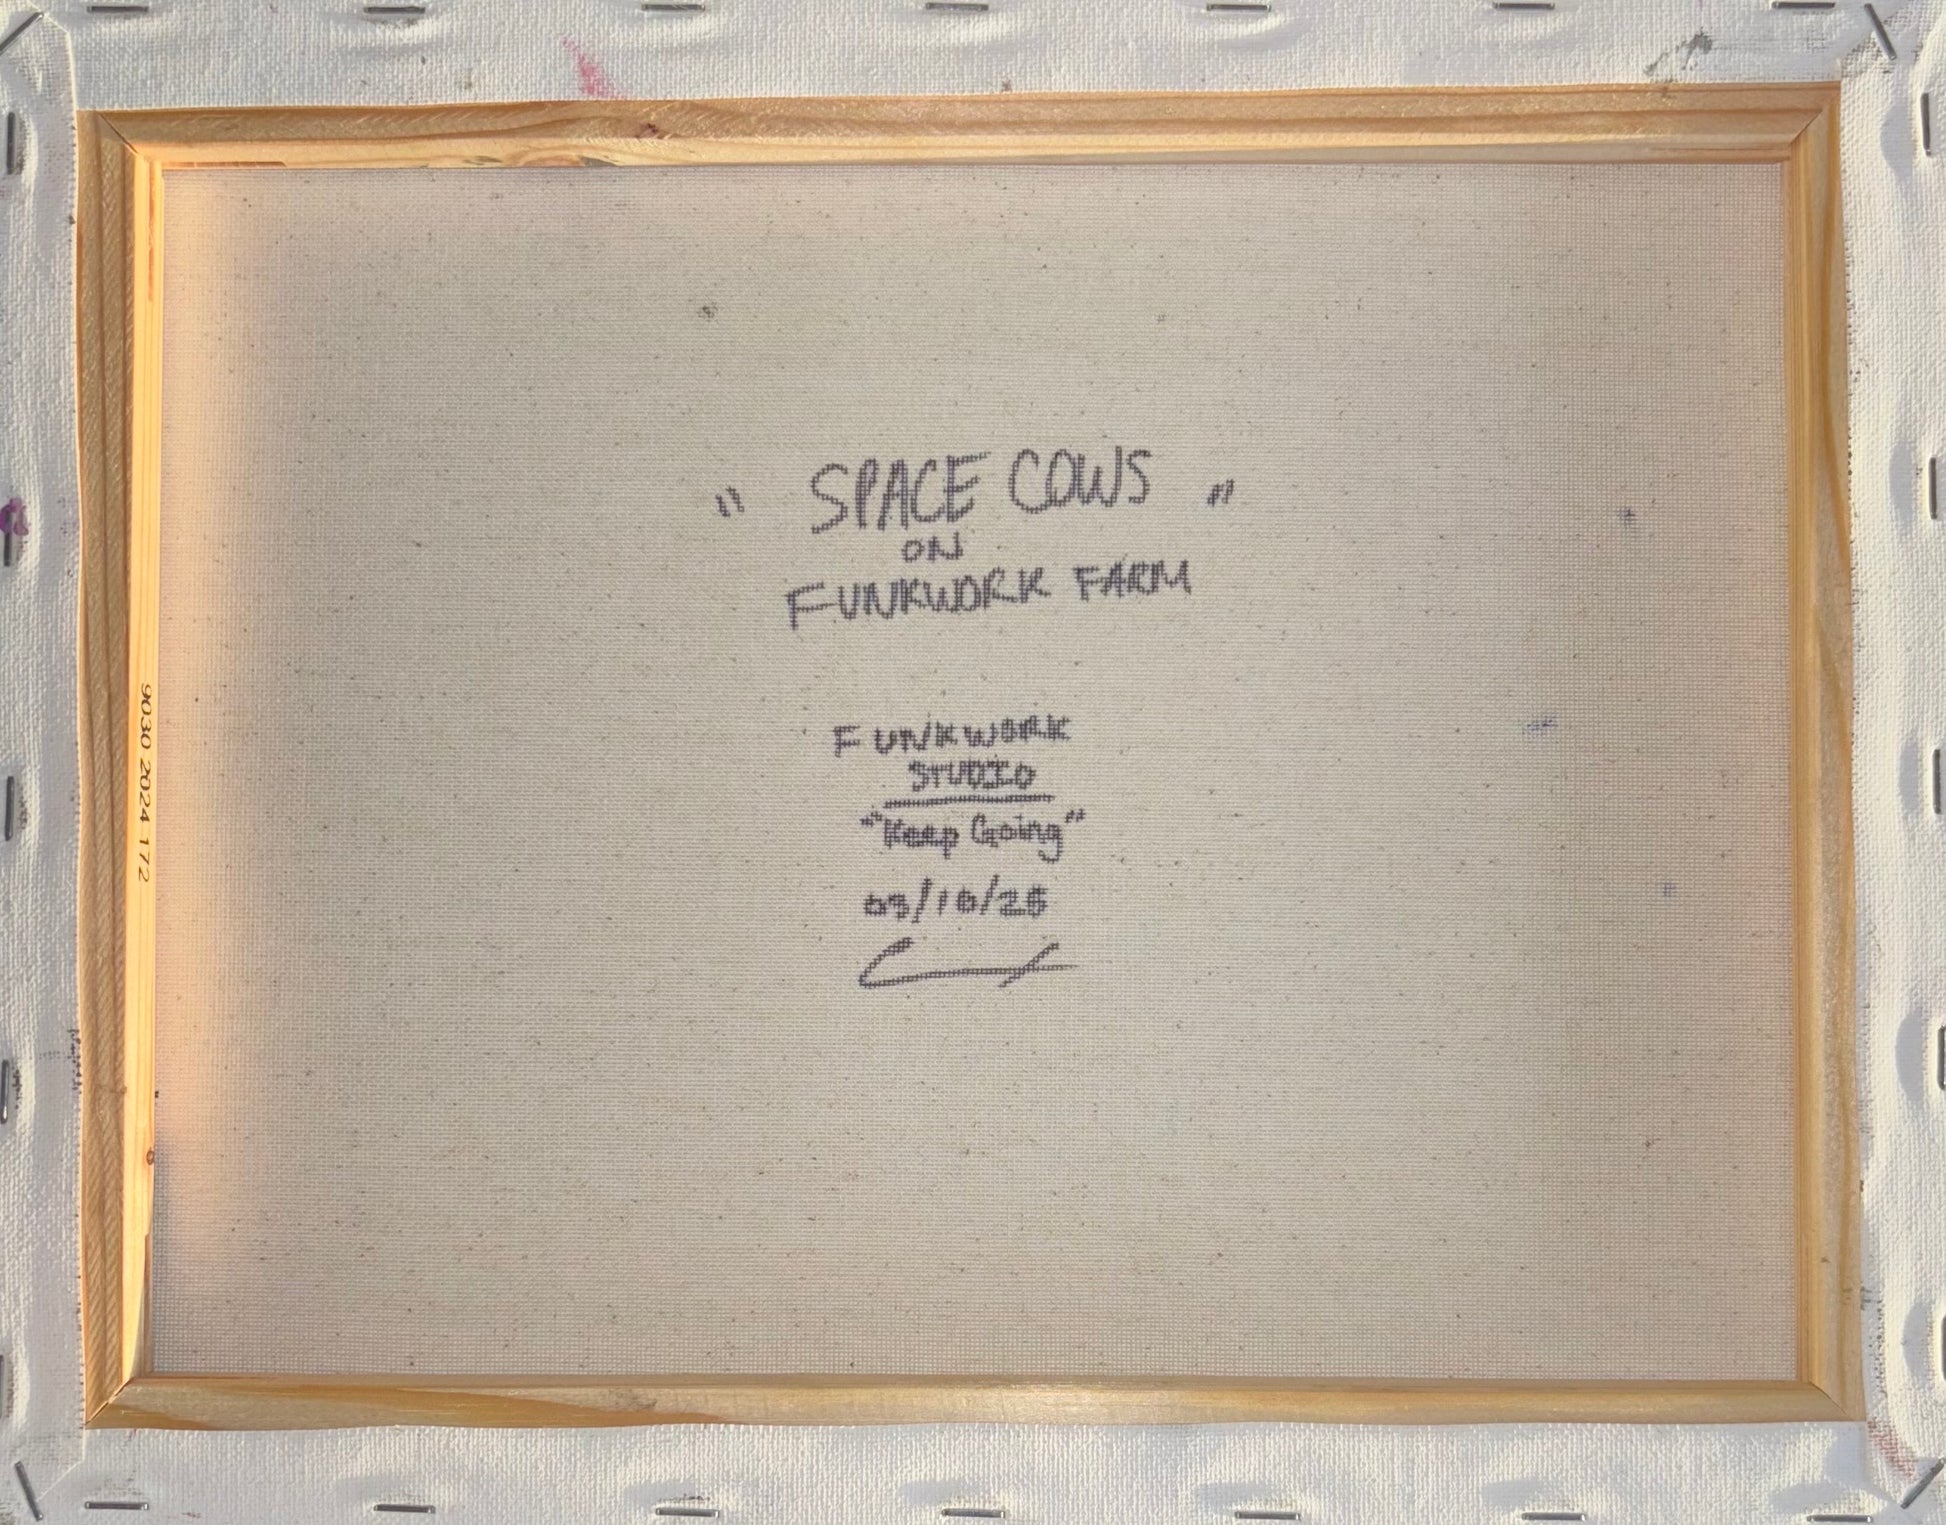 " SPACE COWS "
ON
FUNKWORK FARM
FUNKWORK
STUDIO
"Keep Going"
03/10/25
9030 2024 172